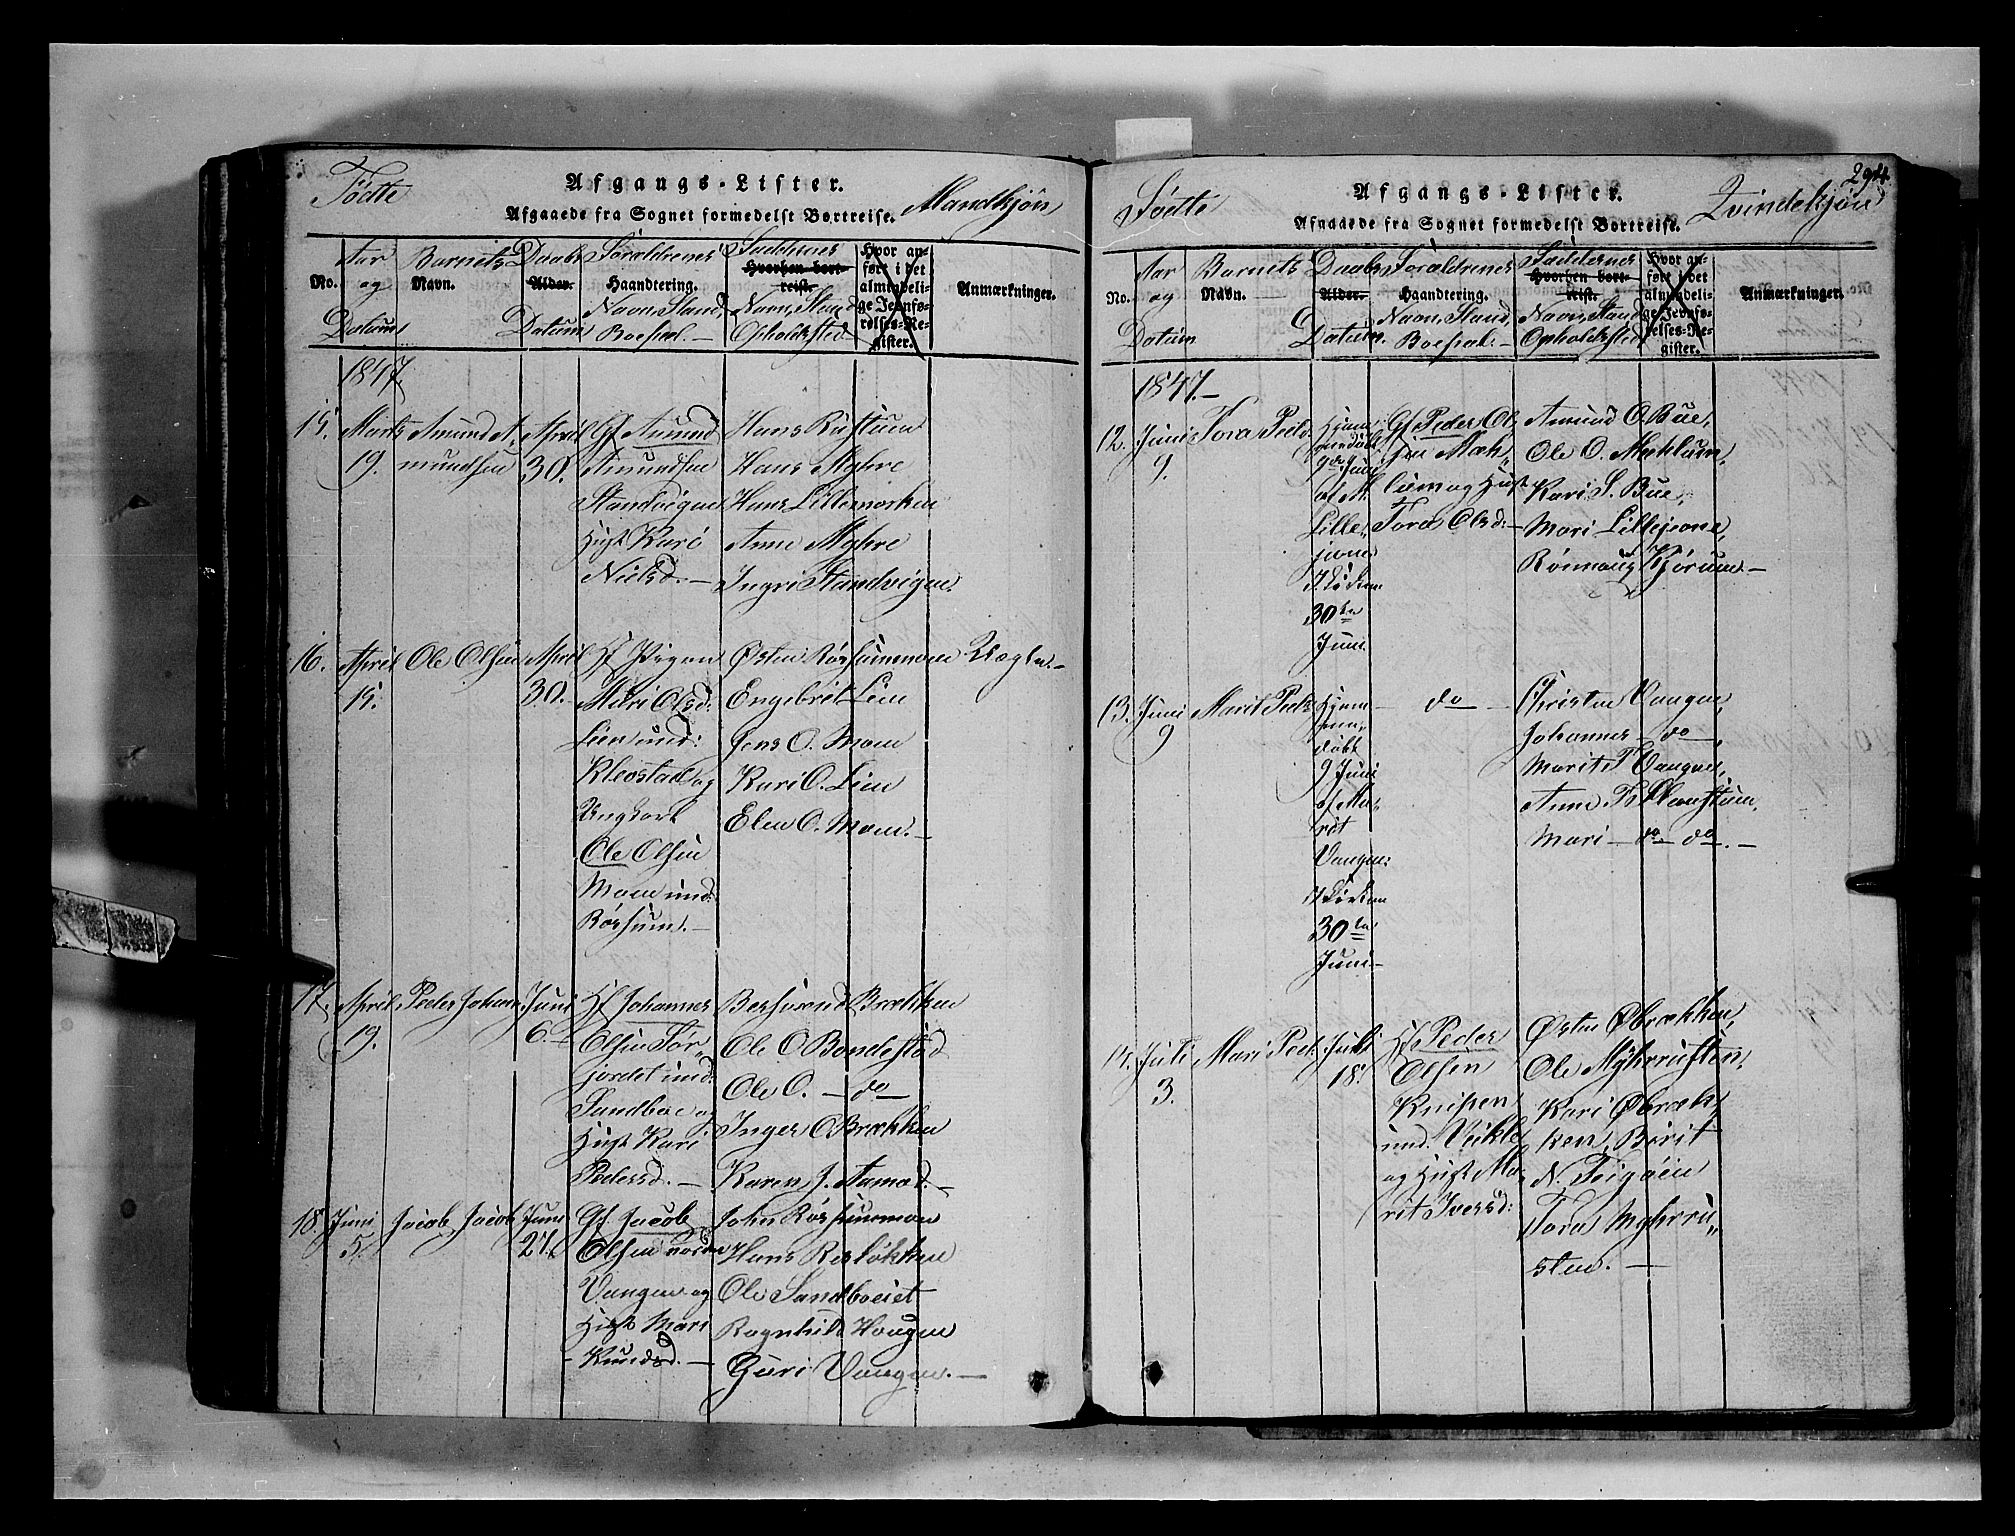 Fødte
Afgangs-Lister.
Mandkjön
Afgaaede fra Sognet formedelst Bortreise.
No.
Aar og Datum
Barnets Navn.
Daabs Alder. Datum
Forældrenes Haandtering. Navn, Stand, Boepæl.-
Faddernes Hvorhen bortreist. Navn, Stand Opholdssted
Hvor anført i det almindelige Jevnførelses-Register.
Anmærkninger.
1847.
15. Marts 19.
Amund Amundsen
April 30.
Gf Amund
Amundsen
Standvigen
Hust Kari
Nielsd.-
Hans Rustum
Hans Myhre
Hans Lillemorken
Anne Myhre
Ingri Standvigen.
16. April 15.
Ole Olsen
April 30.
Pigen
Mari Olsd:
Lien und:
Kleostad og
Ungkarl
Ole Olsen
Moen und:
Rørhum.-
Østen Rørhummoen
Engebret Lien
Jens O. Moen
Kari O. Lien
Elen O. Moen.-
Uægte.-
17. April 19.
Peder Johan
Juni 6.
Hf Johannes
Olsen Sør-
jordet und:
Sandboe og
Hust Kari
Pedersd.-
Bersvend Brækken
Ole O Bondestad
Ole O. - do -
Inger O Brækken
Karen J. Aamod.-
18. Juni 5.
Jacob Jacob
Juni 27.
Gf Jacob
Olsen
Vangen og
Hust Mari
Knudsd.-
John Rørhusmoen
Hans Resløkken
Ole Sandboeiet
Ragnhild Haugen
Guri Vangen.-
294.
Fødte
Afgangs-Lister.
Qvindekjön
Afgaaede fra Sognet formedelst Bortreise.
No.
Aar og Datum
Barnets Navn.
Daabs Alder. Datum.
Forældrenes Haandtering. Navn, Stand, Boepæl.-
Faddernes Hvorhen bortreist. Navn, Stand Opholdssted
Hvor anført i det almindelige Jevnførelses-Register.
Anmærkninger.
1847.-
12. Juni 9.
Tora Ped.
Hjem-
medøbt
9de Juni
af M.
Lille-
jione
I Kirken
30te
Juni
Gf Peder Ol-
sen Mæh-
lum og Hust
Tora Olsd:-
Amund O. Bue,
Ole O. Mæhlum,
Kari S. Bue,
Mari Lillejone,
Rønnoug Kjørum.-
13. Juni 9
Marit Peds
Hjem-
me-
døbt
9 Juni
af Ma-
rit
Vangen:
I Kirken
30te
Juni-
do
Christen Vangen,
Johannes - do -,
Marit T Vangen,
Mari - do - do.-
14. Juli 3.
Mari Ped:
Juli 18.
Hf. Peder
Olsen
Knipen
und. Veikle
og Hust Ma-
rit Iversd:
Østen Øbrækken,
Ole Myhrrusten,
Kari Øbræk-
ken, Birit
N. Teigøien
Tora Myhrru-
sten.-